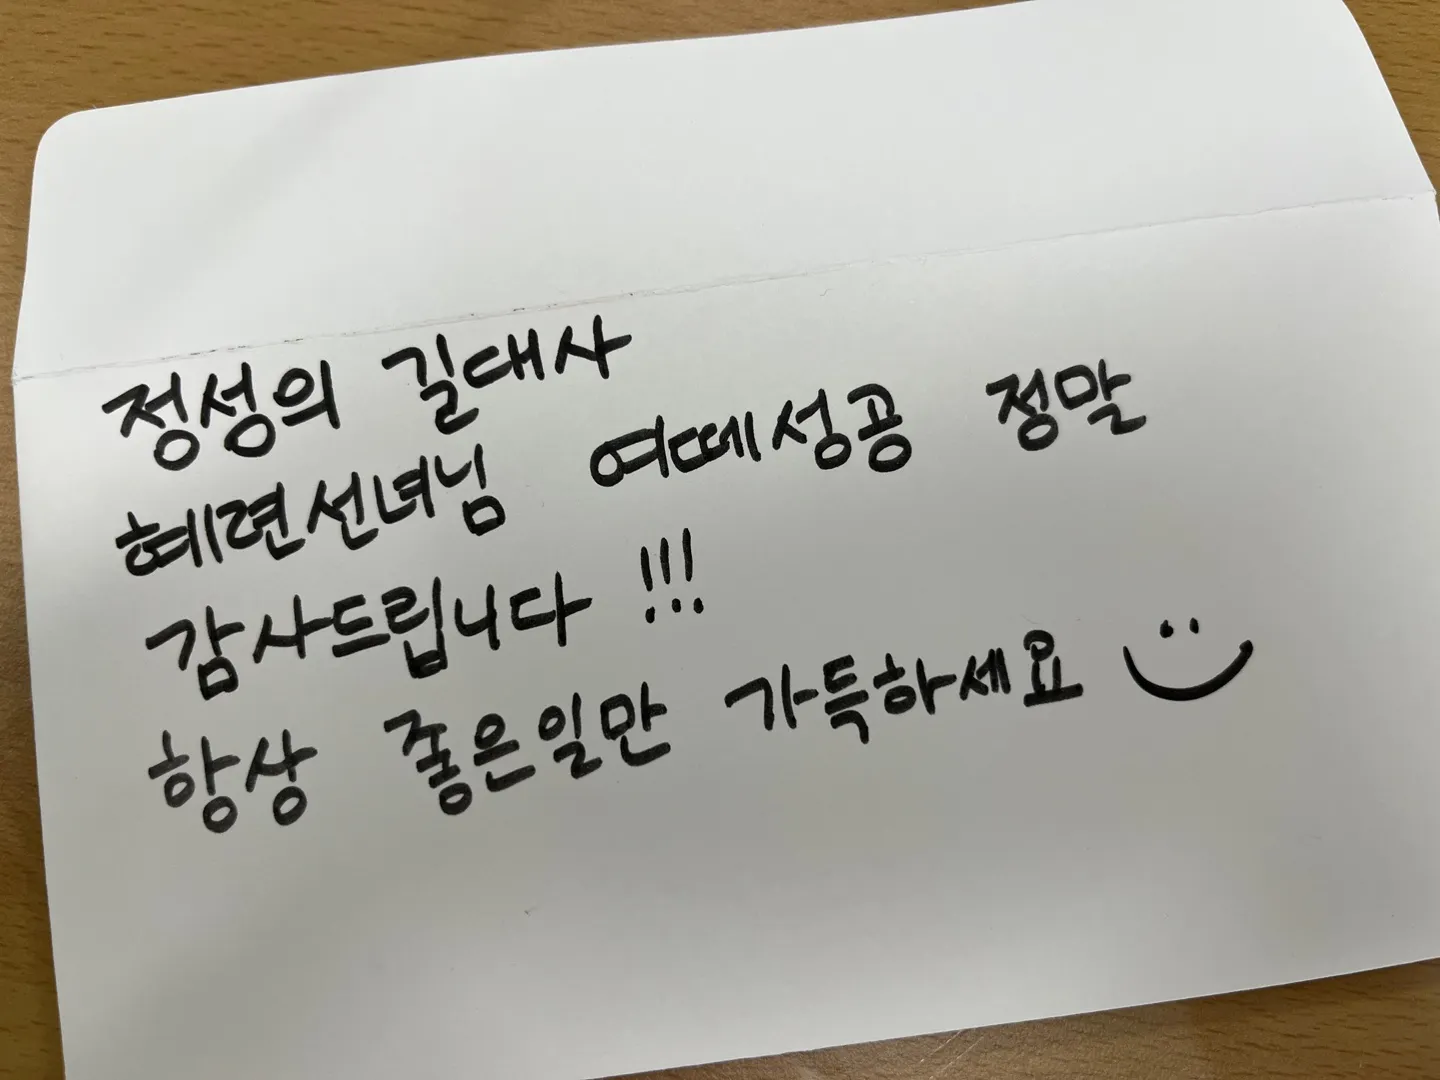 정성의 길대사
혜련선녀님 여떼성공 정말
감사드립니다 !!!
항상 좋은일만 가득하세요